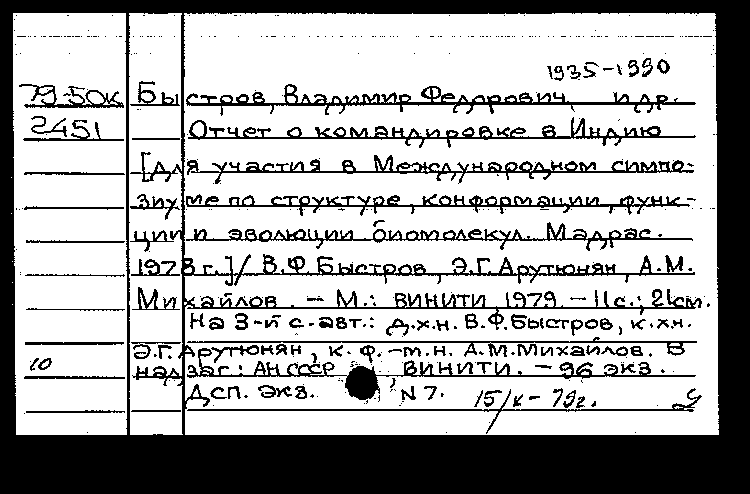 1935-1990
79-50к Быстров, Владимир Федорович, и др.
2451 Отчет о командировке в Индию
[для участия в Международном симпо-
зиуме по структуре, конформации, функ-
ции и эволюции биомолекул. Мадрас.
1978 г.] / В.Ф. Быстров, Э.Г. Арутюнян, А.М.
Михайлов. - М.: ВИНИТИ, 1979. - 11 с.; 21 см.
На 3-й с. авт.: д.х.н. В.Ф. Быстров, к.х.н.
Э.Г. Арутюнян, к.ф.-м.н. А.М. Михайлов. В
10 надзаг: АН СССР, ВИНИТИ. - 96 экз.
Дсп. экз. N 7. 15/X-79г.